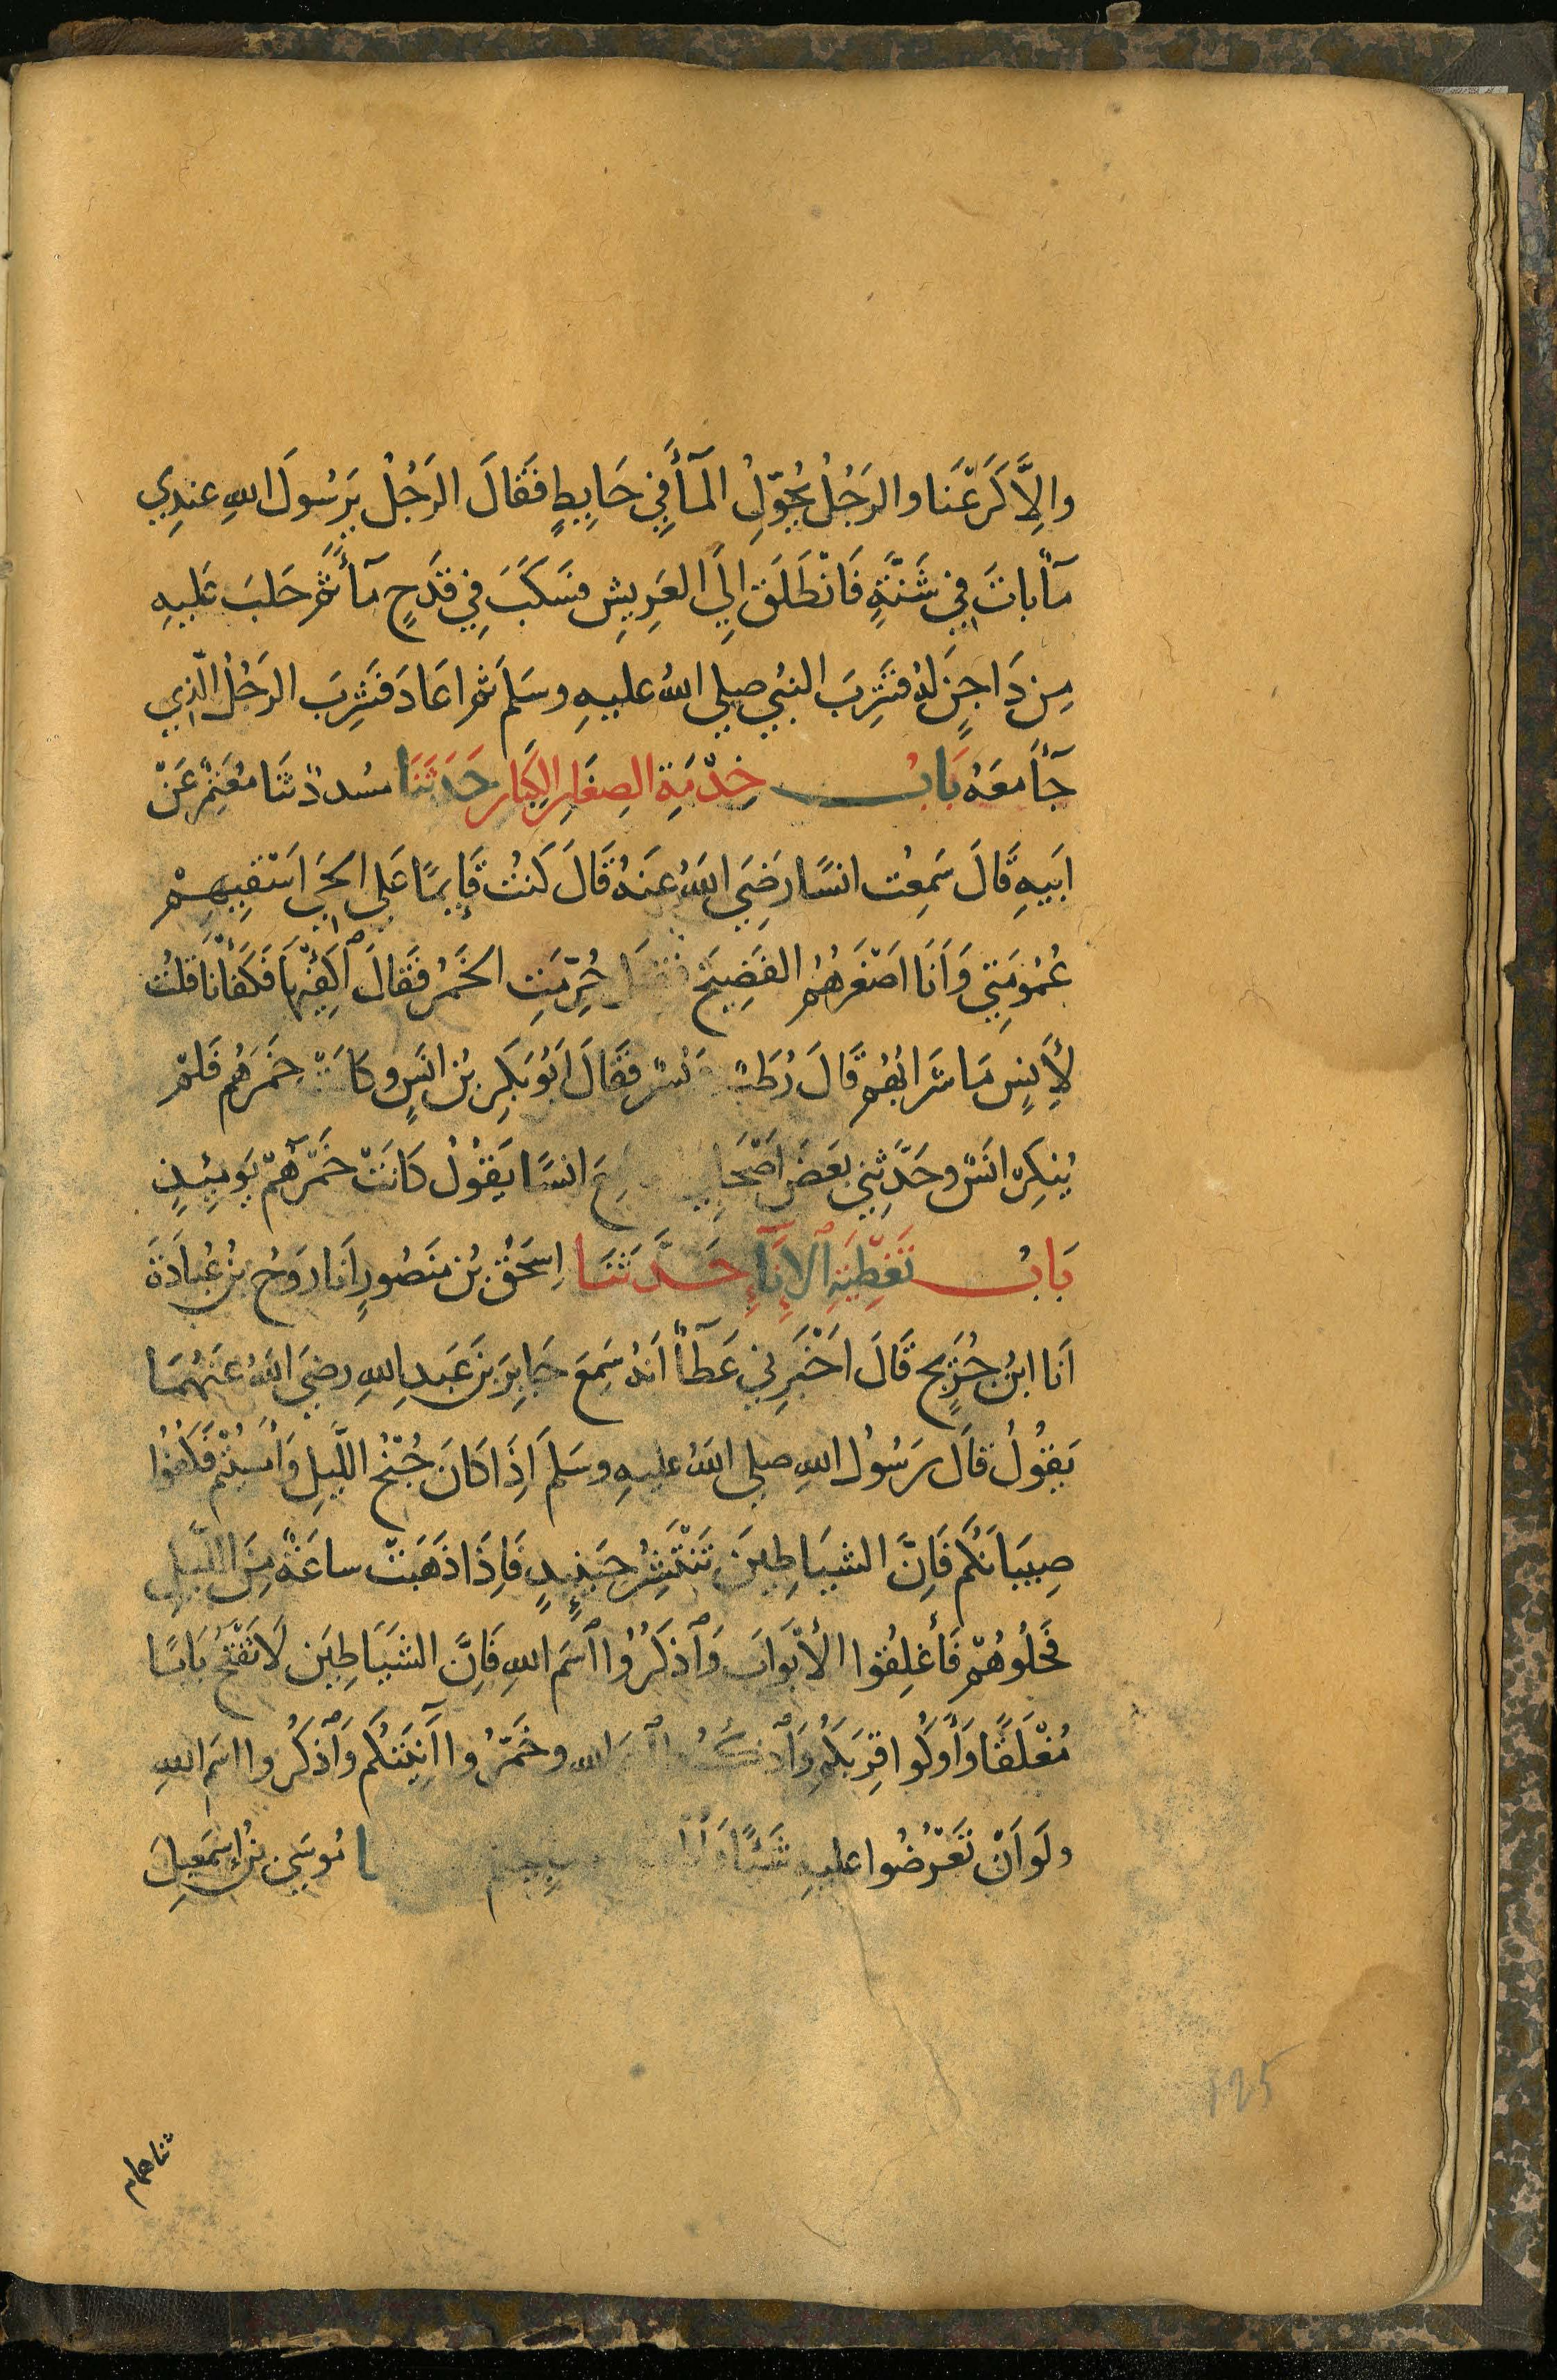 وَاِلَّا كَرَعْنَا والرَجُلُ يُحوّلُ المآءَ فِي حَايِطٍ فَقَالَ الرَجُلُ يَرَسُولَ اللهِ عِندِي
مآءٌ باتَ فِي شَنَّةٍ فَانْطَلَقَ اِلَي العَرِيشِ فسَكَبَ فِي قَدَحٍ مآءً ثم حَلبَ عَليهِ
مِن دَاجِنٍ لهُ فشَرِبَ النبيُ صلي اللهُ عليهِ وسَلمَ ثم اعَادَ فَشَرِبَ الرَجُلُ الّذِي
جَآءَ معَهُ بَابُ خِدْمَةِ الصِغَارِ الكِبَارِ حَدَثَنَا مسُددٌ ثنَا معُتَمِرٌ عَنْ
ابَيهِ قَالَ سَمِعْت انسًا رَضِيَ اللهُ عنَهُ قَالَ كَنتُ قَايِمًا عَلي الحَيِ اَسْقِيهِمْ
عُمُومَتِي وَاَنَا اصَغَرهُمُ الفَضِيخَ حُرِّمَتِ الخَمرُ فقَالَ اَكفِئهَا فَكَفأنَا قُلتُ
لِأنسٍ مَا شَرَابُهُم قَالَ رُطَبٌ وَبُسْرٌ فقَالَ ابَوُ بَكِرِ بُن انَسٍ وكَانَتْ خَمَرَهُم فَلمْ
يُنكِرْ انَسٌ وحَدَّثِني بَعَضُ اصَْحَابِي انسًا يَقُولُ كانَتْ خَمْرَهُمْ يَوَمَئِذٍ
بَابُ تَغْطِيَةِ الاِنَآءِ حَدَّثَنَا اِسِحَقُ بُن منَصُورٍ اَنَا رَوحُ بنُ عُبَادَةَ
اَنَا ابنُ جُرَيجٍ قَالَ اَخْبَرَنِي عَطَآءٌ اَنهُ سَمِعَ جَابِرَ بنَ عَبدِ اللهِ رضيَ اللهُ عنَهُمَا
يَقُولُ قَالَ رَسُولُ اللهِ صلي اللهُ عليهِ وسَلمَ اِذَا كانَ جُنْحُ اللَّيلِ وَاَمْسَيْتُمْ فَكُفُوا
صِبيَانَكُم فَاِنَّ الشيَاطِينَ تَنْتَشِرُ حِينَئِذٍ فَاِذَا ذَهَبَتْ ساعَةٌ مِنَ اللَّيلِ
فَحُلُوهُمْ فَأغلِقُوا الأبْوَابَ وَاذكُرُوا اسَم اللهِ فَاِنَّ الشَيَاطِيَن لَا تَفْتَحُ بَابًا
مُغْلَقًا وَأَوكُوا قِرَبَكُم وَاذْكُرُوا اسْمَ اللهِ وخَمّرُوا آنِيَتَكُم وَاذكُرُوا اسَم اللهِ
ولَو اَنْ تَعْرُضُوا عليهِ شَيئًا مُوسَي بْنُ إِسمَعِيلَ
ثنا همام
125